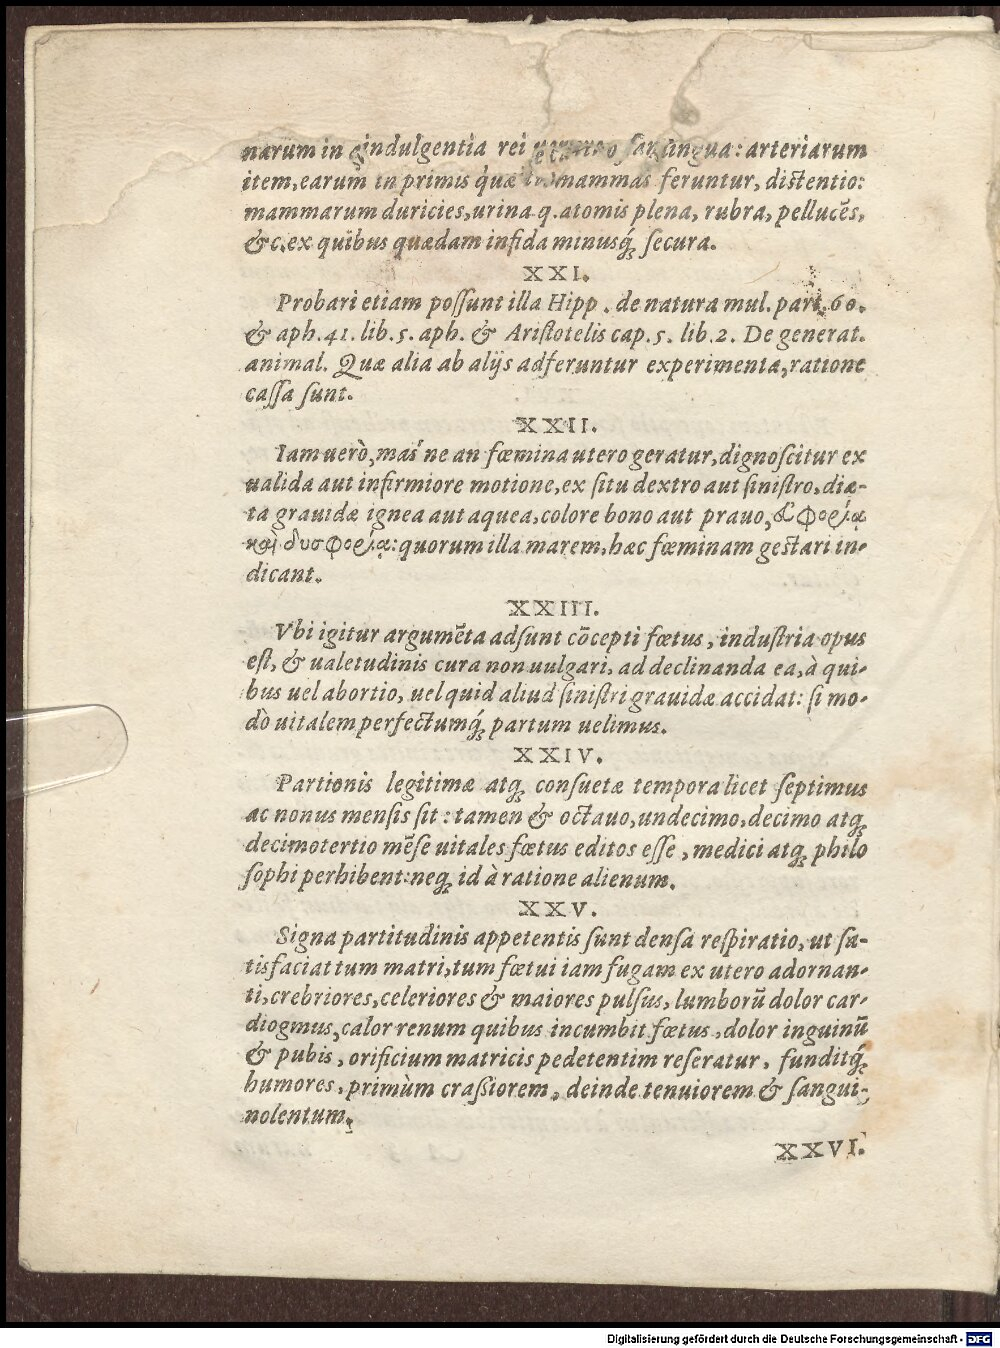 narum in indulgentia rei : arteriarum
item, earum in primis quæ mammas feruntur, distentio:
mammarum duricies, urina q. atomis plena, rubra, pellucēs,
&c. ex quibus quædam infida minusq́; secura.
XXI.
Probari etiam possunt illa Hipp. de natura mul. part. 60.
& aph. 41. lib. 5. aph. & Aristotelis cap. 5. lib. 2. De generat.
animal. Quæ alia ab alijs adferuntur experimenta, ratione
cassa sunt.
XXII.
Iam uerò, mas ne an fœmina utero geratur, dignoscitur ex
ualida aut infirmiore motione, ex situ dextro aut sinistro, diæ-
ta grauidæ ignea aut aquea, colore bono aut prauo, εὐφορίᾳ
καὶ δυσφορίᾳ: quorum illa marem, hæc fœminam gestari in-
dicant.
XXIII.
Vbi igitur argumēta adsunt cōcepti fœtus, industria opus
est, & ualetudinis cura non uulgari, ad declinanda ea, à qui-
bus uel abortio, uel quid aliud sinistri grauidæ accidat: si mo-
dò uitalem perfectumq́; partum uelimus.
XXIV.
Partionis legitimæ atq; consuetæ tempora licet septimus
ac nonus mensis sit: tamen & octauo, undecimo, decimo atq;
decimotertio mēse uitales fœtus editos esse, medici atq; philo
sophi perhibent: neq; id à ratione alienum.
XXV.
Signa partitudinis appetentis sunt densa respiratio, ut sa-
tisfaciat tum matri, tum fœtui iam fugam ex utero adornan-
ti, crebriores, celeriores & maiores pulsus, lumborū dolor car-
diogmus, calor renum quibus incumbit fœtus, dolor inguinū
& pubis, orificium matricis pedetentim reseratur, funditq́;
humores, primùm crassiorem, deinde tenuiorem & sangui-
nolentum.
XXVI.
Digitalisierung gefördert durch die Deutsche Forschungsgemeinschaft - DFG